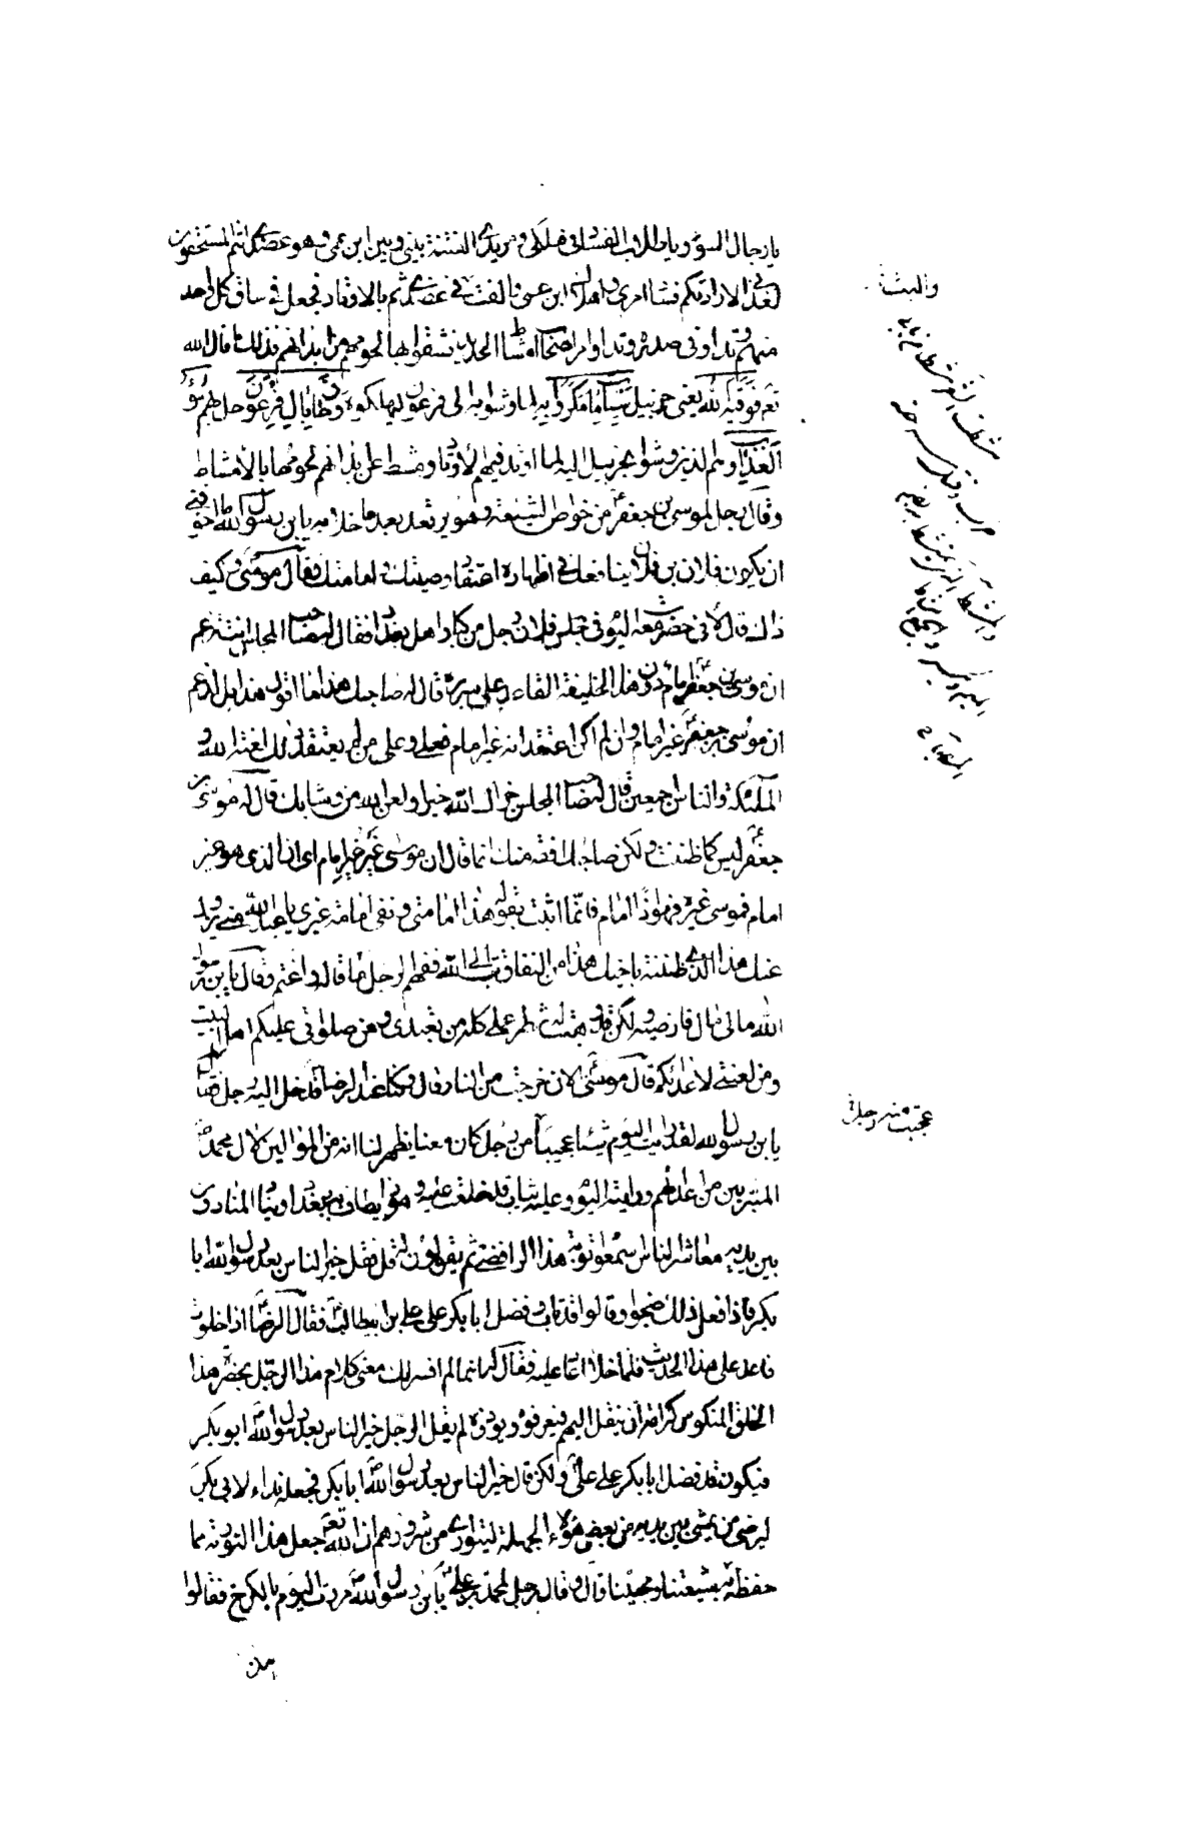 يا رجال السوء ويا طلاب الفساد في ملكي ومريدي الفتنة بيني وبين ابن عمي وهو عضدي انتم المستحقون
لعذابي لارادتكم فساد امري واهلاك ابن عمي والفت في عضدي ثم امر بالاوتاد فجعل في ساق كل واحد
منهم وتد او في صدره وتد وامر اصحاب امشاط الحديد فشقوا بها لحومهم من ابدانهم فذلك ما قال الله
تعم فوقيه الله يعني حزبيل سيئات ما مكروا به لما وشوا به الى فرعون ليهلكوه وحاق بال فرعون حل بهم سوء
العذاب وهم الذين وشوا بحزبيل اليه لما اوتد فيهم الاوتاد ومشط عن ابدانهم لحومها بالامشاط
وقال رجل لموسى بن جعفر من خواص الشيعة وهو يرتعد بعد ما خلا به يا بن رسول الله ما اخوفني
ان يكون فلان بن فلان ينافقك في اظهاره اعتقاد وصيتك وامامتك فقال موسى وكيف
ذاك قال لاني حضرت معه اليوم في مجلس فلان رجل من كبار اهل بغداد فقال له صاحب المجلس انت تزعم
ان موسى بن جعفر امام دون هذا الخليفة القاعد على سريره قال له صاحبك هذا ما اقول هذا بل ازعم
ان موسى بن جعفر غير امام وان لم اكن اعتقد انه غير امام فعلي وعلى من لم يعتقد ذلك لعنة الله و
الملئكة والناس اجمعين قال له صاحب المجلس جزاك الله خيرا ولعن الله من وشا بك قال له موسى بن
جعفر ليس كما ظننت ولكن صاحبك افقه منك انما قال ان موسى غير امام اي ان الذي هو غير
امام فموسى غيره فهو اذا امام فانما اثبت بقوله هذا امامتي ونفى امامة غيري يا عبد الله متى يزول
عنك هذا الذي ظننته باخيك هذا من النفاق تب الى الله ففهم الرجل ما قاله واغتم وقال يا بن رسول
الله مالي مال فارضيه ولكن قد وهبت له شطر عملي كله من تعبدي ومن صلواتي عليكم اهل البيت
ومن لعنتي لاعدائكم قال موسى الان خرجت من النار قال وكنا عند الرضا فدخل اليه رجل فقال
يا بن رسول الله لقد رايت اليوم شيئا عجيبا من رجل كان معنا يظهر لنا انه من الموالين لال محمد
المتبرين من اعدائهم ورايته اليوم وعليه ثياب قد خلعت عليه وهو ذا يطاف به ببغداد وينادي المنادون
بين يديه معاشر الناس اسمعوا توبة هذا الرافضي ثم يقولون له قل فقل خير الناس بعد رسول الله ابا
بكر فاذا فعل ذلك ضجوا وقالوا قد تاب وفضل ابا بكر على علي بن ابيطالب فقال الرضا اذا خلوت
فاعد علي هذا الحديث فلما خلا اعاد عليه فقال له انما لم افسر لك معنى كلام هذا الرجل بحضرة هذا
الخلق المنكوس كراهة ان ينقل اليهم فيعرفوه ويؤذوه لم يقل الرجل خير الناس بعد رسول الله ابو بكر
فيكون قد فضل ابا بكر على علي ولكن قال خير الناس بعد رسول الله ابا بكر فجعله نداء لابي بكر
ليرضي من يمشي بين يديه من بعض هؤلاء الجهلة ليتوارى من شرورهم ان الله تعم جعل هذا التورية مما
حفظ به شيعتنا ومحبينا قال وقال رجل لمحمد بن علي يا بن رسول الله مررت اليوم بالكرخ فقالوا
عجبت منه رجل